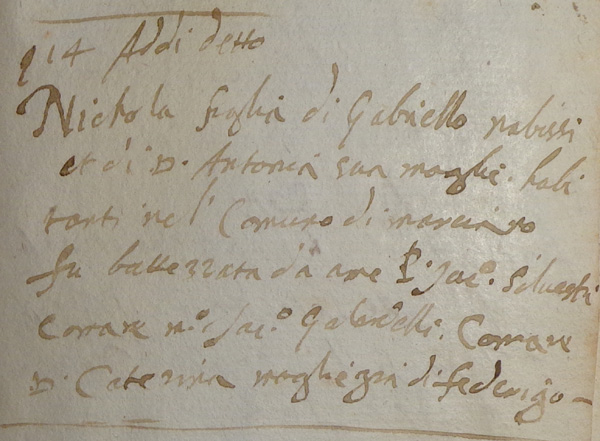 214 Addi detto
Nichola figlia di Gabriello nabissi
et di D. Antonia sua moglie. habi
tanti nel Comuno di marciano
fu battezzata da me P. Jac.º Siluestri
Comare m.º Jac.º Gabrielli. Comare
D. Caterina moglie di federigo